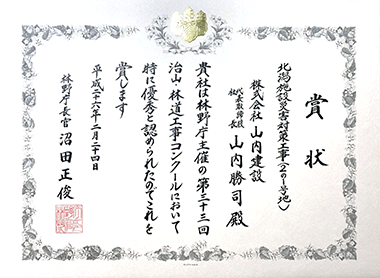 賞状
北潟施設災害対策工事(201号地)
株式会社 山内建設
代表取締役社長 山内勝司 殿
貴社は林野庁主催の第三十三回
治山・林道工事コンクールにおいて
特に優秀と認められたのでこれを
賞します
平成二十六年二月二十四日
林野庁長官 沼田正俊